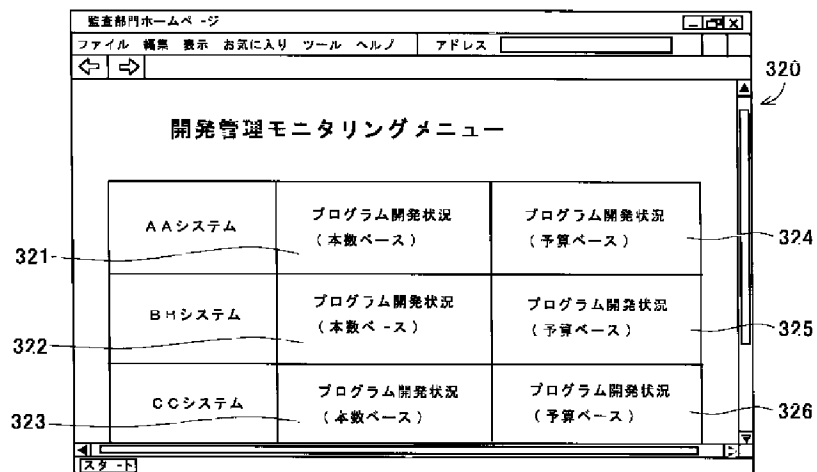 監査部門ホームページ
ファイル 編集 表示 お気に入り ツール ヘルプ アドレス
320
開発管理モニタリングメニュー
AAシステム
プログラム開発状況
(本数ベース)
プログラム開発状況
(予算ベース)
321
324
BBシステム
プログラム開発状況
(本数ベース)
プログラム開発状況
(予算ベース)
322
325
CCシステム
プログラム開発状況
(本数ベース)
プログラム開発状況
(予算ベース)
323
326
スタート